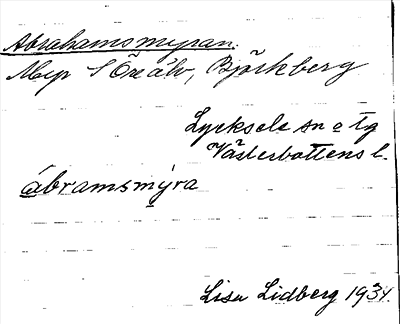 Abrahamsmyran.
Myr S Öreälv, Björkberg
Lycksele sn o tg
Västerbottens l.
ábramsmýra
Lisa Lidberg 1934.